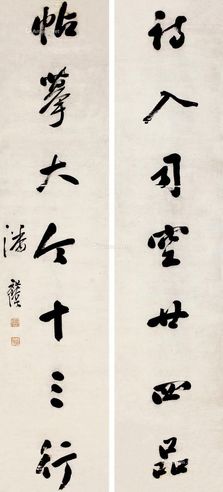 詩入司空廿四品
帖摹大令十三行
潘